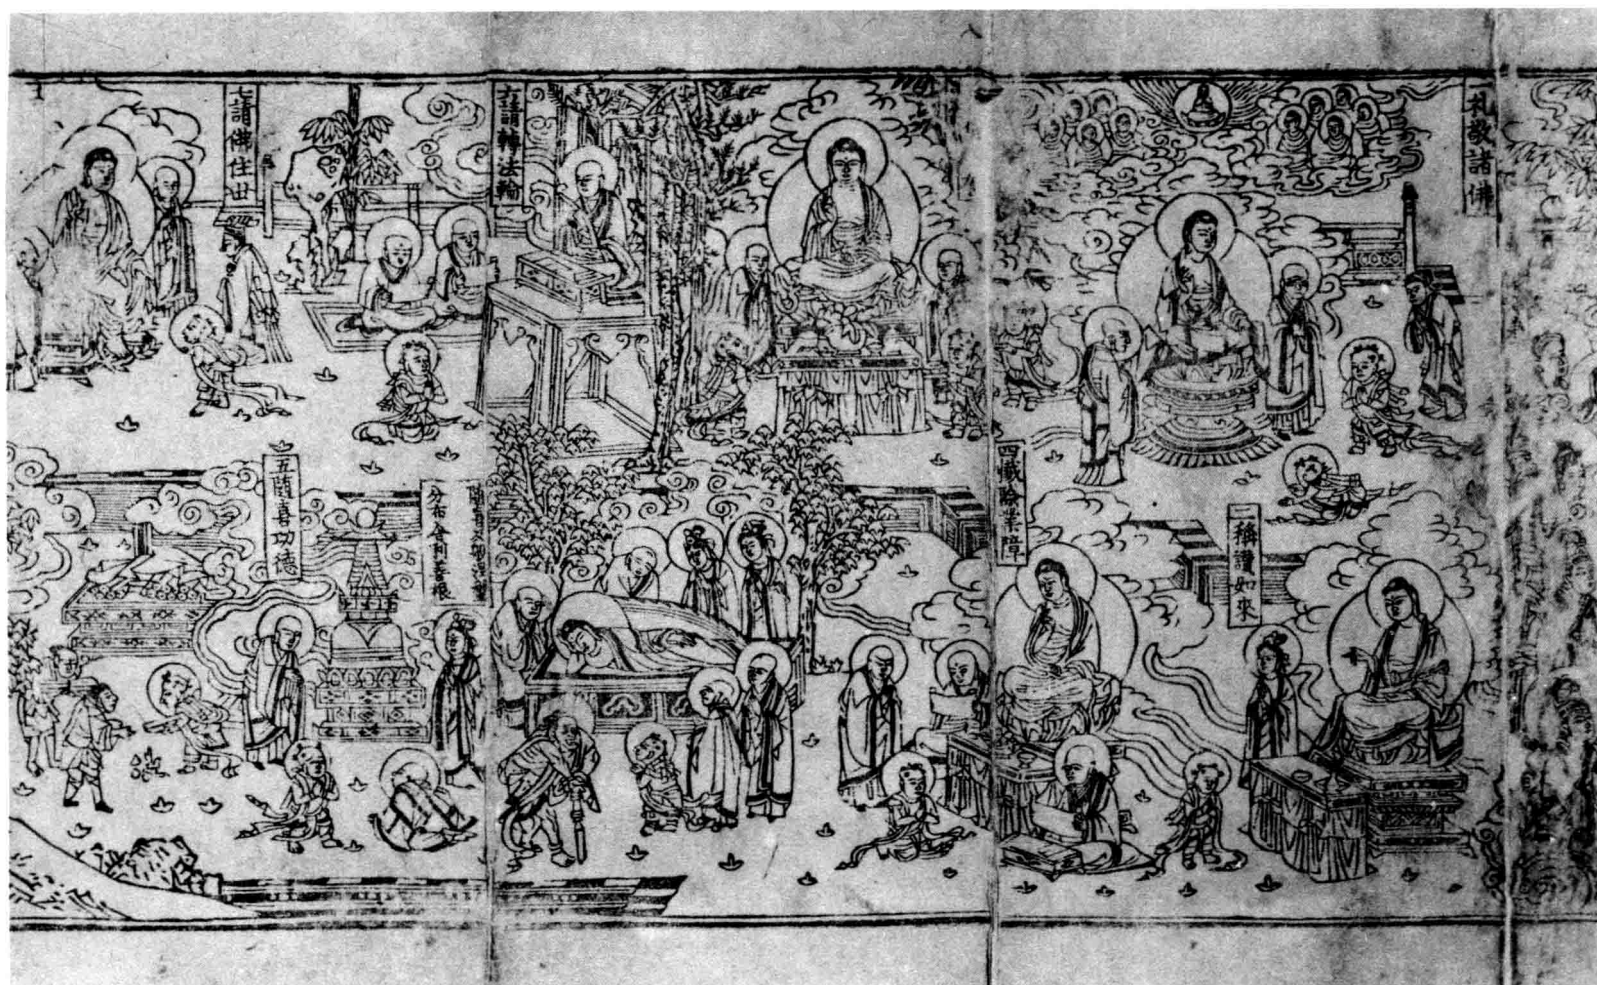 礼敬諸佛
二稱讚如來
四懺除業障
六請轉法輪
隨喜
分布舍利善根
五隨喜功德
七請佛住世